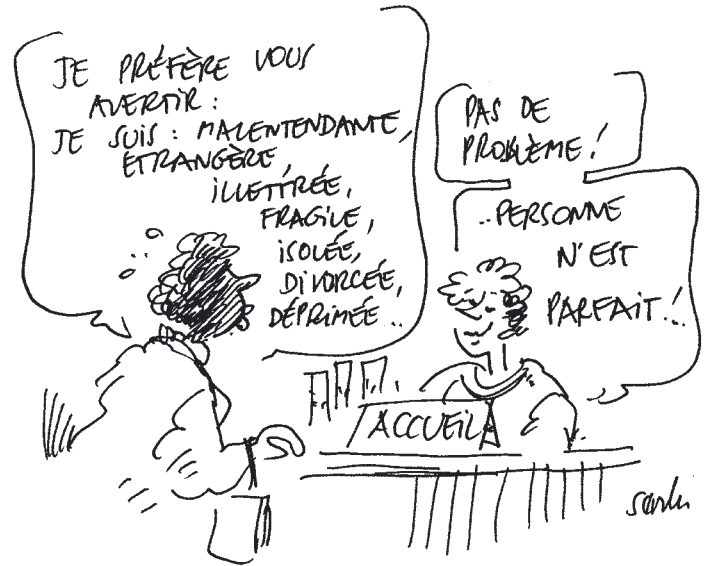 JE PRÉFÈRE VOUS
AVERTIR :
JE SUIS : MALENTENDANTE,
ETRANGÈRE,
ILLETTRÉE,
FRAGILE,
ISOLÉE,
DIVORCÉE,
DÉPRIMÉE...
PAS DE
PROBLÈME !
...PERSONNE
N'EST
PARFAIT !..
ACCUEIL